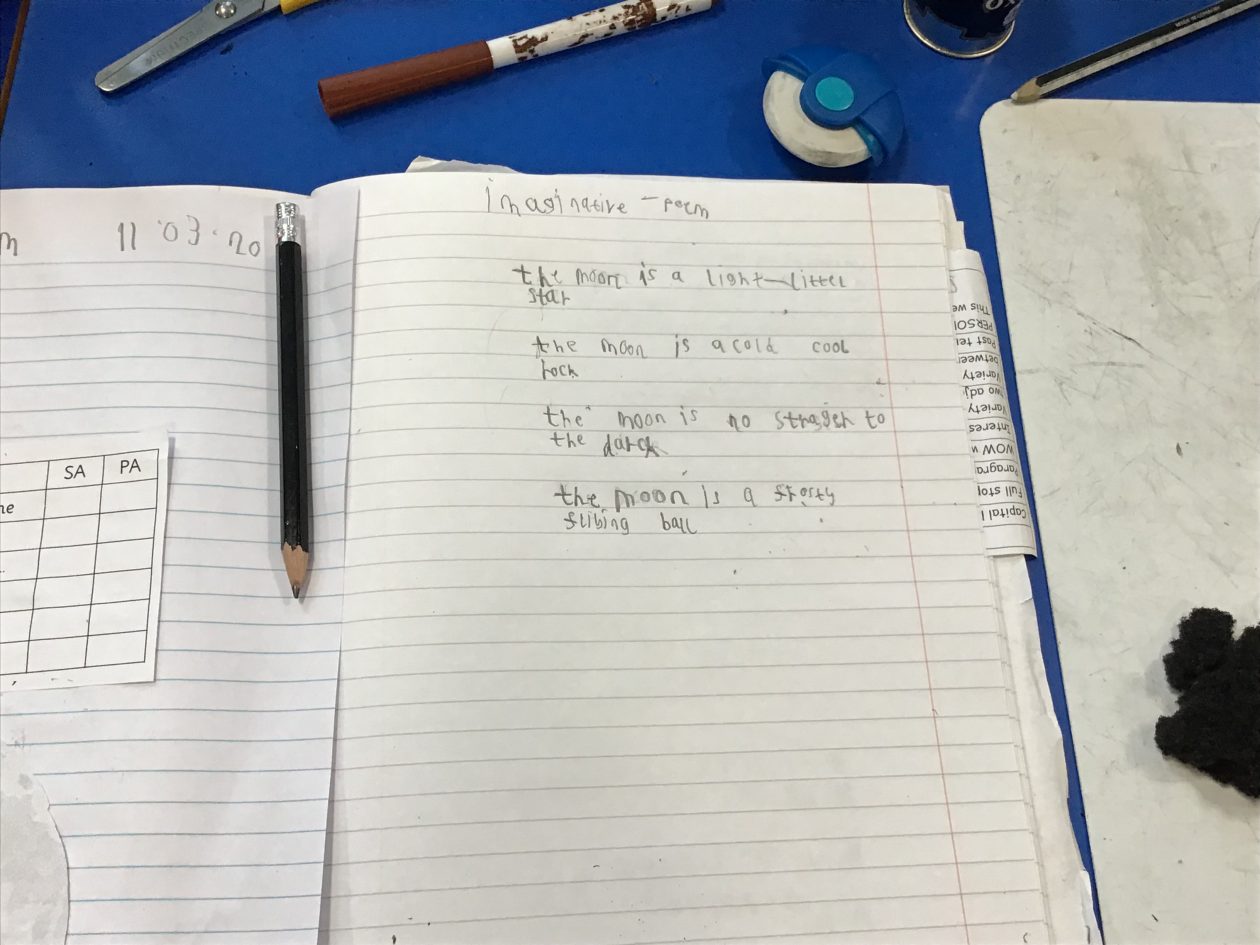 m 11.03.20
ne SA PA
imaginative - poem
the moon is a light-litter
star
the moon is a cold cool
rock
the moon is no strager to
the darck
the moon is a frosty
flibing ball
This we
PERSO
Past te
betwee
Variety
two adj
Variety
Interes
WOW w
Paragra
Full sto
Capital l